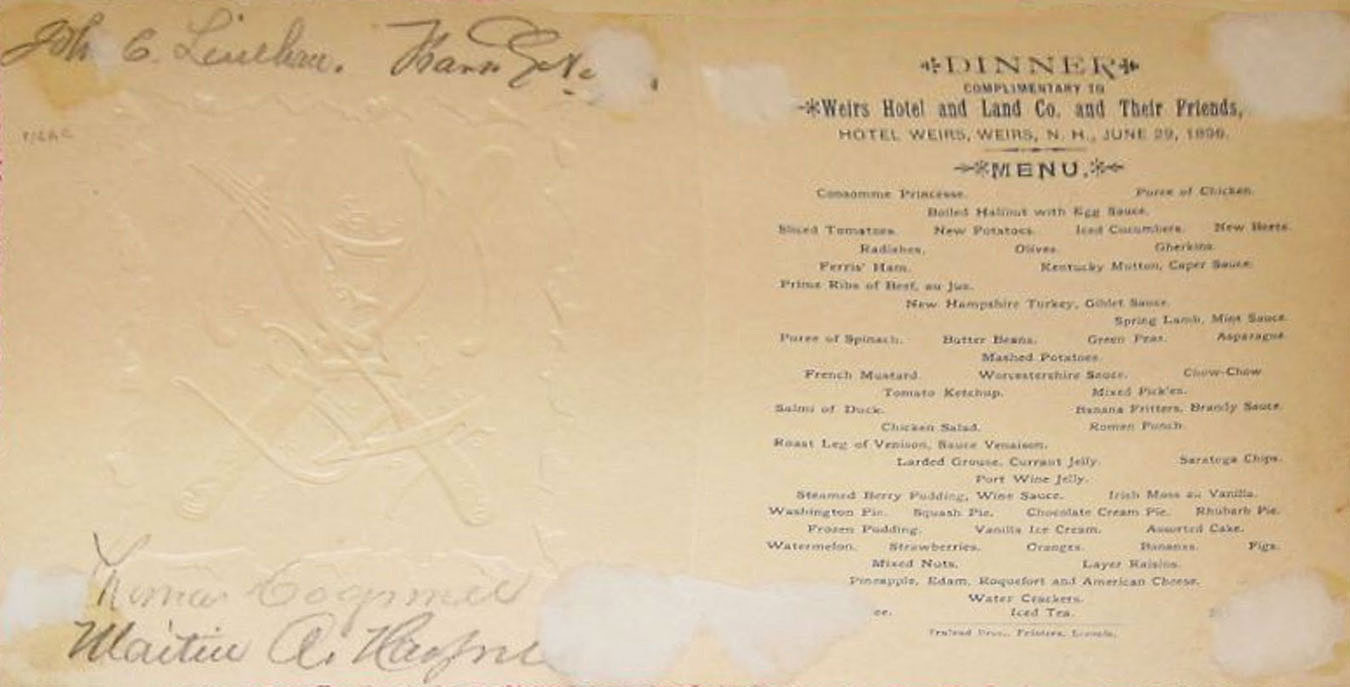 John C. Linehan.
DINNER
COMPLIMENTARY TO
Weirs Hotel and Land Co. and Their Friends,
HOTEL WEIRS, WEIRS, N. H., JUNE 29,
MENU.
Consomme Princesse. Puree of Chicken.
Boiled Halibut with Egg Sauce.
Sliced Tomatoes. New Potatoes. Iced Cucumbers. New Beets.
Radishes. Olives. Gherkins.
Ferris' Ham. Kentucky Mutton, Caper Sauce.
Prime Ribs of Beef, au Jus.
New Hampshire Turkey, Giblet Sauce.
Spring Lamb, Mint Sauce.
Puree of Spinach. Butter Beans. Green Peas. Asparagus.
Mashed Potatoes.
French Mustard. Worcestershire Sauce. Chow-Chow
Tomato Ketchup. Mixed Pickles.
Salmi of Duck. Banana Fritters, Brandy Sauce.
Chicken Salad. Roman Punch.
Roast Leg of Venison, Sauce Venaison.
Larded Grouse, Currant Jelly. Saratoga Chips.
Port Wine Jelly.
Steamed Berry Pudding, Wine Sauce. Irish Moss au Vanilla.
Washington Pie. Squash Pie. Chocolate Cream Pie. Rhubarb Pie.
Frozen Pudding. Vanilla Ice Cream. Assorted Cake.
Watermelon. Strawberries. Oranges. Bananas. Figs.
Mixed Nuts. Layer Raisins.
Pineapple, Edam, Roquefort and American Cheese.
Water Crackers.
Iced Tea.
Printers,
Thomas Cogswell
Martin A. Haynes